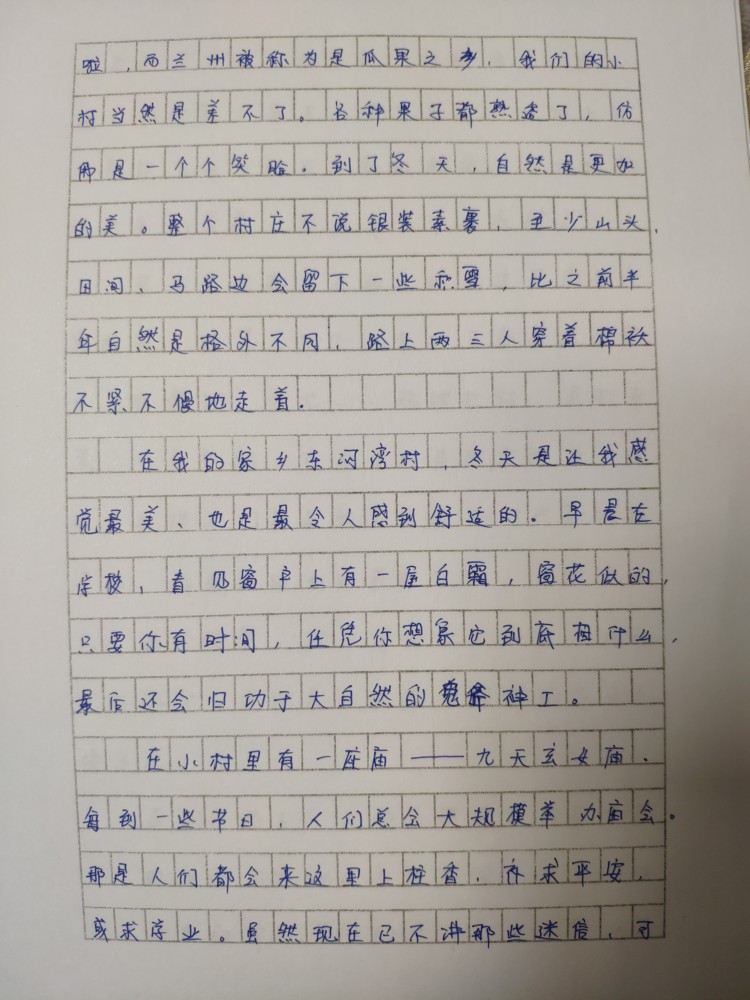 啦，西兰州被称为是瓜果之乡，我们的小
村当然是差不了。各种果子都熟透了，仿
那是一个个笑脸．到了冬天，自然是更加
的美。整个村庄不说银装素裹，至少山头，
田间、马路边会留下一些积雪，比之前半
年自然是格外不同，路上两三人穿着棉袄
不紧不慢地走着．
在我的家乡东河湾村，冬天是让我感
觉最美、也是最令人感到舒适的．早晨在
学校，看见窗户上有一层白霜，窗花似的，
只要你有时间，任凭你想象它到底相什么，
最后还会归功于大自然的鬼斧神工。
在小村里有一座庙——九天玄女庙．
每到一些节日，人们总会大规模举办庙会。
那是人们都会来这里上柱香，祈求平安，
或求学业。虽然现在已不讲那些迷信，可